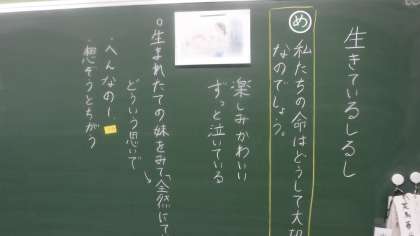 生きているしるし
め 私たちの命はどうして大切
なのでしょう。
楽しみかわいい
ずっと泣いている
○生まれたての妹をみて「全然にて
どういう思いで
・へんなの!
・想ぞうとちがう